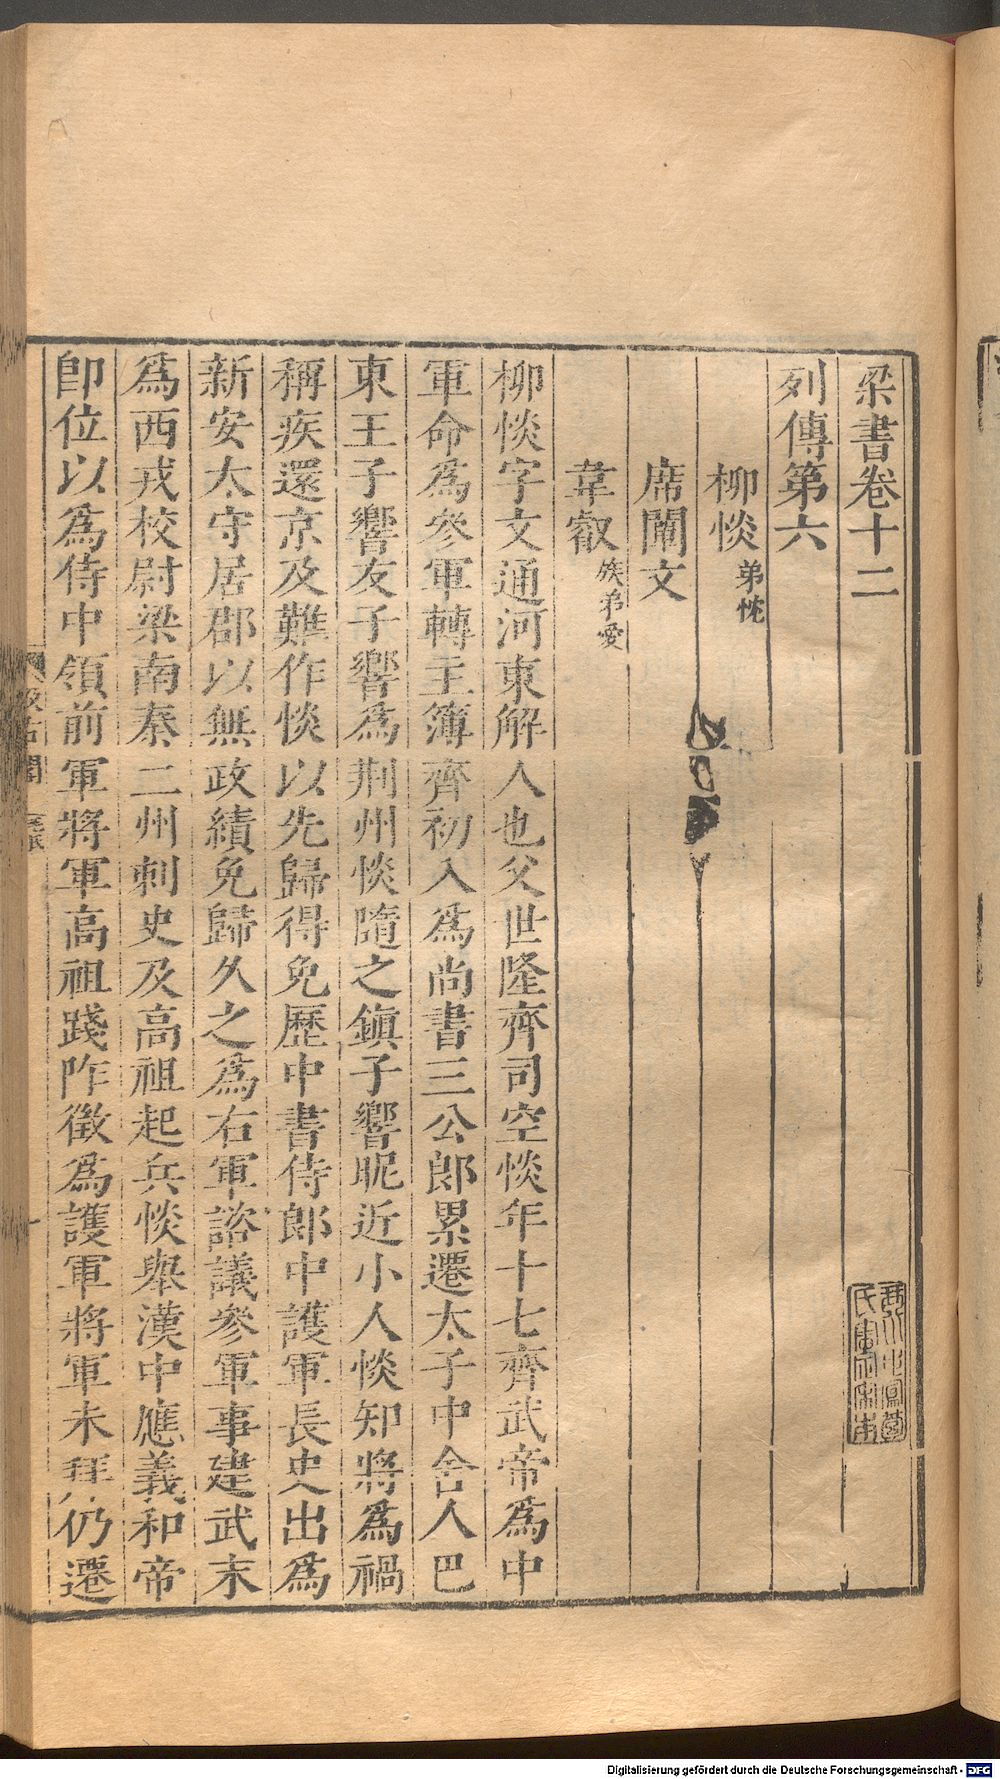 梁書卷十二
列傳第六
柳惔 弟忱
席闡文
韋叡 族弟愛
柳惔字文通河東解人也父世隆齊司空惔年十七齊武帝爲中
軍命爲參軍轉主簿齊初入爲尚書三公郎累遷太子中舍人巴
東王子響友子響爲荆州惔隨之鎮子響昵近小人惔知將爲禍
稱疾還京及難作惔以先歸得免歷中書侍郎中護軍長史出爲
新安太守居郡以無政績免歸久之爲右軍諮議參軍事建武末
爲西戎校尉梁南秦二州刺史及高祖起兵惔舉漢中應義和帝
卽位以爲侍中領前軍將軍高祖踐阼徵爲護軍將軍未拜仍遷
Digitalisierung gefördert durch die Deutsche Forschungsgemeinschaft - DFG